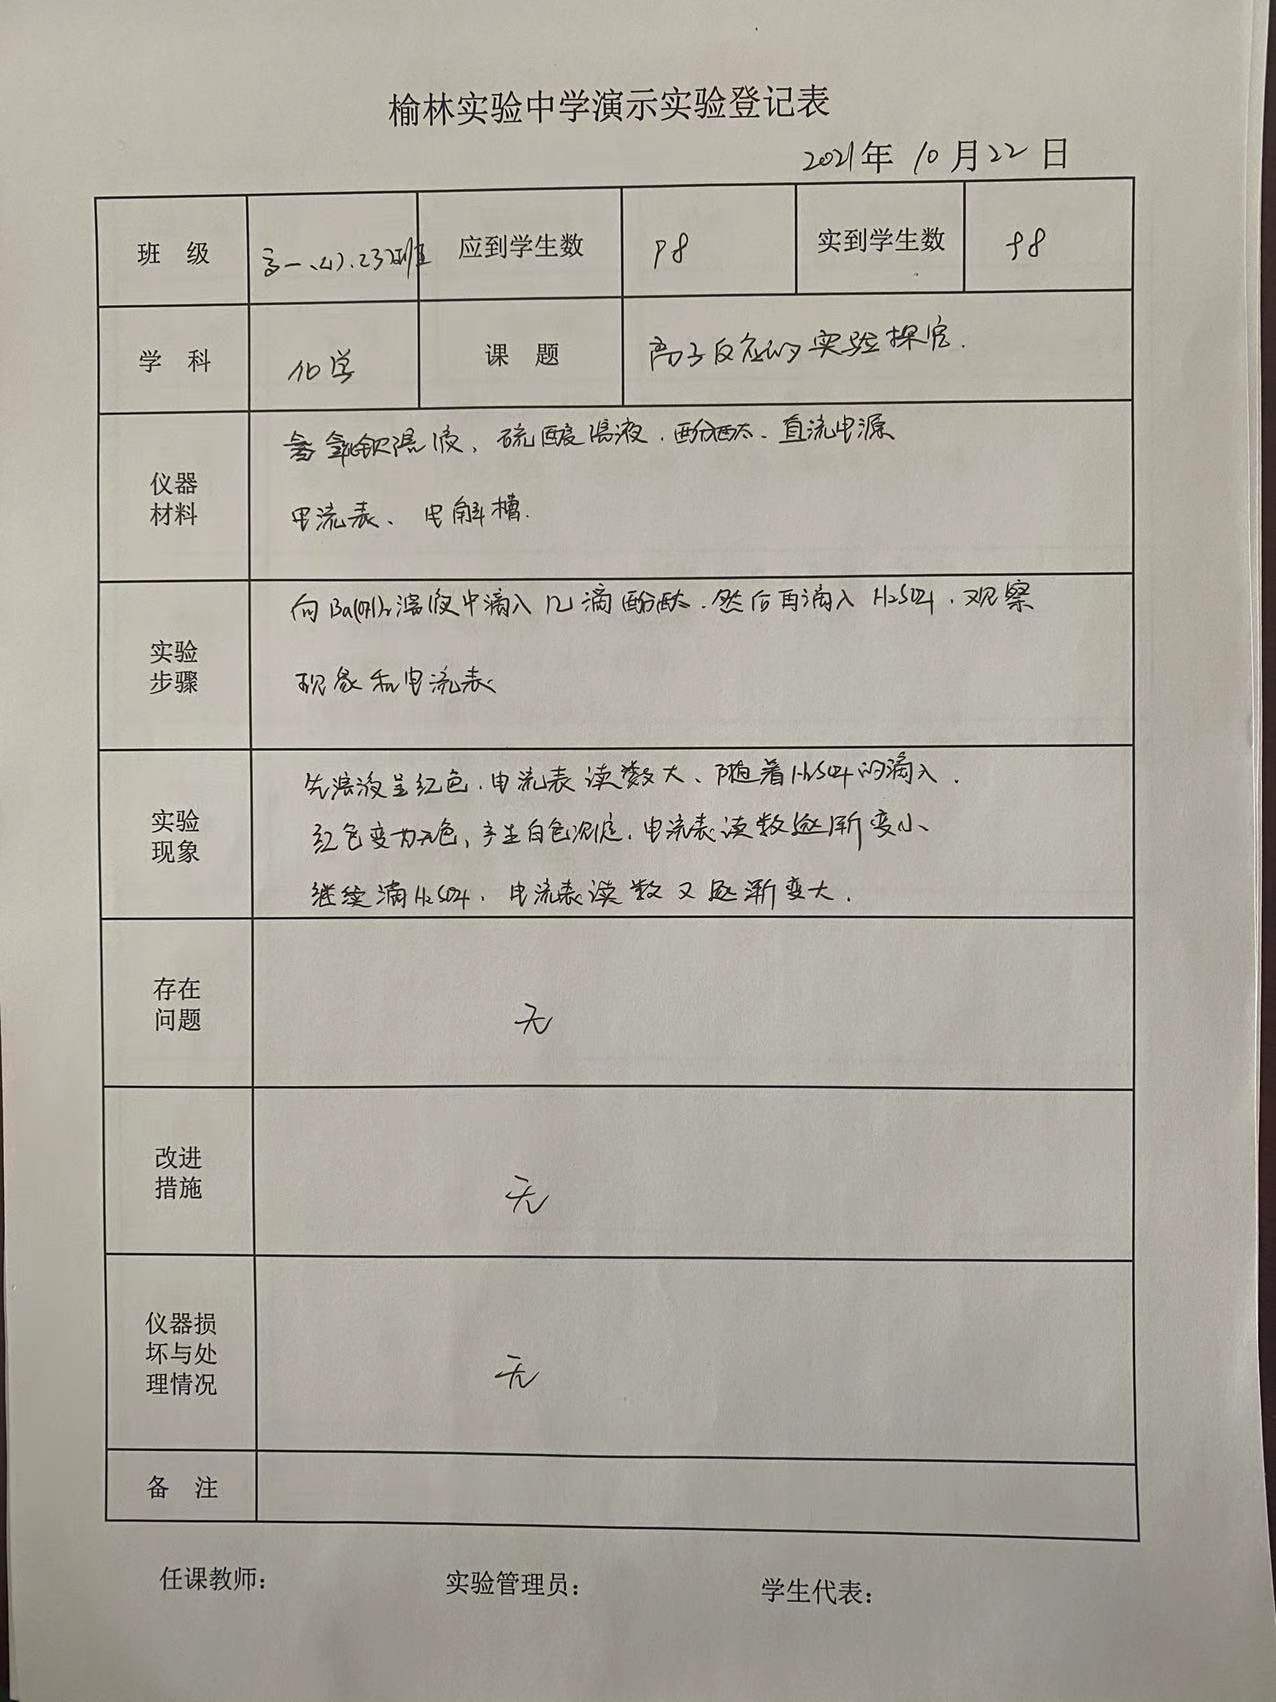 榆林实验中学演示实验登记表
2021年 10月22日
班 级 高一、 班 应到学生数 98 实到学生数 98
学 科 化学 课 题 离子反应的实验探究.
仪器材料 氢氧化钡溶液、硫酸溶液.酚酞、直流电源
电流表、电解槽.
实验步骤 向Ba(OH)2溶液中滴入几滴酚酞.然后再滴入H2SO4.观察
现象和电流表
实验现象 先溶液呈红色.电流表读数大、随着H2SO4的滴入.
红色变为无色,产生白色沉淀.电流表读数逐渐变小、
继续滴H2SO4.电流表读数又逐渐变大.
存在问题 无
改进措施 无
仪器损坏与处理情况 无
备 注
任课教师： 实验管理员： 学生代表：